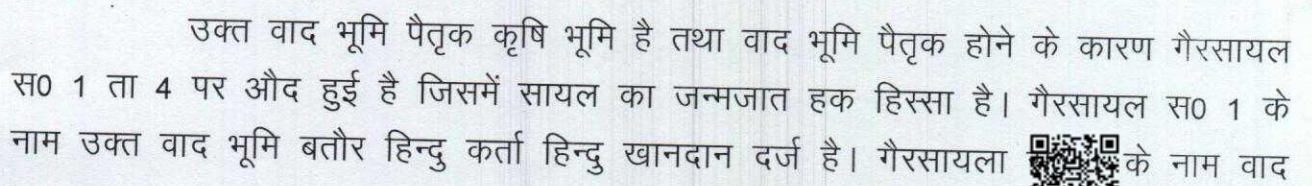 उक्त वाद भूमि पैतृक कृषि भूमि है तथा वाद भूमि पैतृक होने के कारण गैरसायल
स0 1 ता 4 पर औद हुई है जिसमें सायल का जन्मजात हक हिस्सा है। गैरसायल स0 1 के
नाम उक्त वाद भूमि बतौर हिन्दु कर्ता हिन्दु खानदान दर्ज है। गैरसायला के नाम वाद